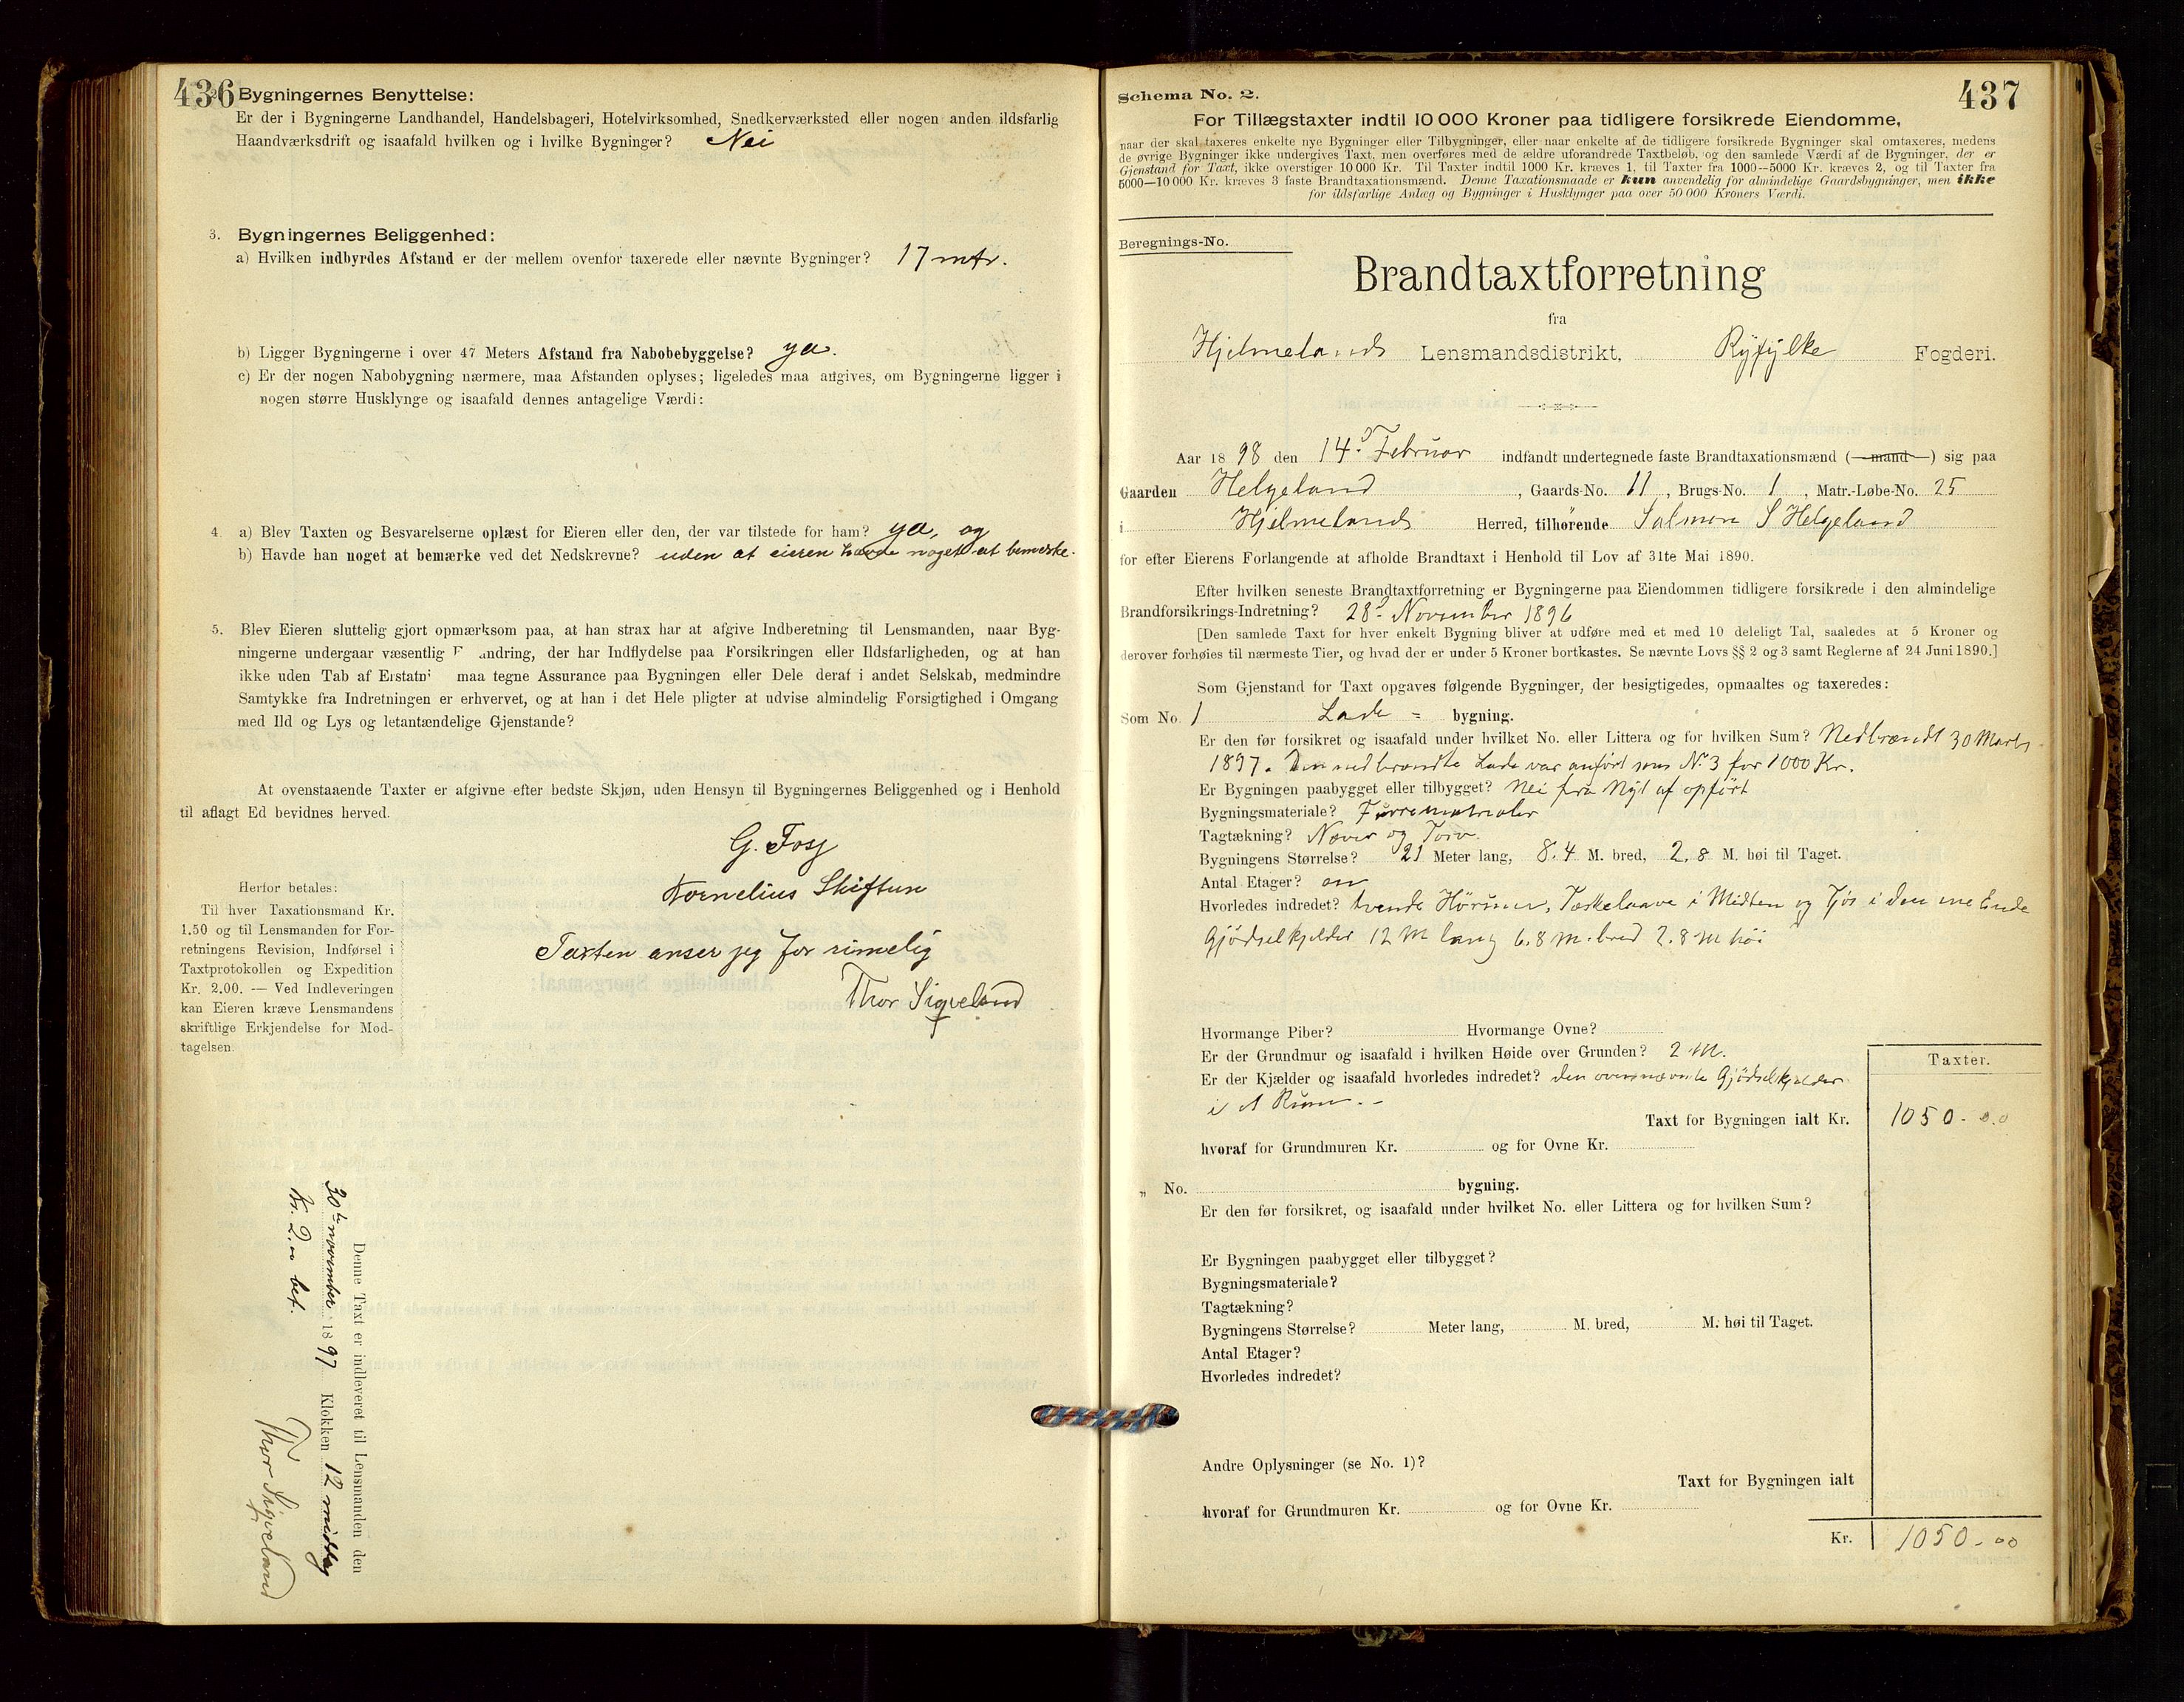 436
Bygningernes Benyttelse:
Er der i Bygningerne Landhandel, Handelsbageri, Hotelvirksomhed, Snedkerværksted eller nogen anden ildsfarlig
Haandværksdrift og isaafald hvilken og i hvilke Bygninger? Nei
3. Bygningernes Beliggenhed:
a) Hvilken indbyrdes Afstand er der mellem ovenfor taxerede eller nævnte Bygninger? 17 mtr.
b) Ligger Bygningerne i over 47 Meters Afstand fra Nabobebyggelse? ya.
c) Er der nogen Nabobygning nærmere, maa Afstanden oplyses; ligeledes maa angives, om Bygningerne ligger i
nogen større Husklynge og isaafald dennes antagelige Værdi:
4. a) Blev Taxten og Besvarelserne oplæst for Eieren eller den, der var tilstede for ham? ya, og
b) Havde han noget at bemærke ved det Nedskrevne? uden at eieren havde noget at bemerke.
5. Blev Eieren sluttelig gjort opmærksom paa, at han strax har at afgive Indberetning til Lensmanden, naar Byg-
ningerne undergaar væsentlig F andring, der har Indflydelse paa Forsikringen eller Ildsfarligheden, og at han
ikke uden Tab af Erstatn maa tegne Assurance paa Bygningen eller Dele deraf i andet Selskab, medmindre
Samtykke fra Indretningen er erhvervet, og at han i det Hele pligter at udvise almindelig Forsigtighed i Omgang
med Ild og Lys og letantændelige Gjenstande?
At ovenstaaende Taxter er afgivne efter bedste Skjøn, uden Hensyn til Bygningernes Beliggenhed og i Henhold
til aflagt Ed bevidnes herved.
G. Fosj
Kornelius Skiftun
Taxten anser jeg for rimelig
Thor Sigveland
Herfor betales:
Til hver Taxationsmand Kr.
1.50 og til Lensmanden for For-
retningens Revision, Indførsel i
Taxtprotokollen og Expedition
Kr. 2.00. — Ved Indleveringen
kan Eieren kræve Lensmandens
skriftlige Erkjendelse for Mod-
tagelsen.
Denne Taxt er indleveret til Lensmanden den
30te november 1897 Klokken 12 middag
Kr. 2.00 bet.
Thor Sigveland
Schema No. 2.
437
For Tillægstaxter indtil 10 000 Kroner paa tidligere forsikrede Eiendomme,
naar der skal taxeres enkelte nye Bygninger eller Tilbygninger, eller naar enkelte af de tidligere forsikrede Bygninger skal omtaxeres, medens
de øvrige Bygninger ikke undergives Taxt, men overføres med de ældre uforandrede Taxtbeløb, og den samlede Værdi af de Bygninger, der er
Gjenstand for Taxt, ikke overstiger 10 000 Kr. Til Taxter indtil 1000 Kr. kræves 1, til Taxter fra 1000—5000 Kr. kræves 2, og til Taxter fra
5000—10 000 Kr. kræves 3 faste Brandtaxationsmænd. Denne Taxationsmaade er kun anvendelig for almindelige Gaardsbygninger, men ikke
for ildsfarlige Anlæg og Bygninger i Husklynger paa over 50 000 Kroners Værdi.
Beregnings-No.
Brandtaxtforretning
fra
Hjelmelands Lensmandsdistrikt, Ryfylke Fogderi.
Aar 1898 den 14d Februar indfandt undertegnede faste Brandtaxationsmænd (mand) sig paa
Gaarden Helgeland, Gaards-No. 11, Brugs-No. 1, Matr.-Løbe-No. 25
i Hjelmelands Herred, tilhørende Salmon S Helgeland
for efter Eierens Forlangende at afholde Brandtaxt i Henhold til Lov af 31te Mai 1890.
Efter hvilken seneste Brandtaxtforretning er Bygningerne paa Eiendommen tidligere forsikrede i den almindelige
Brandforsikrings-Indretning? 28d November 1896
[Den samlede Taxt for hver enkelt Bygning bliver at udføre med et med 10 deleligt Tal, saaledes at 5 Kroner og
derover forhøies til nærmeste Tier, og hvad der er under 5 Kroner bortkastes. Se nævnte Lovs §§ 2 og 3 samt Reglerne af 24 Juni 1890.]
Som Gjenstand for Taxt opgaves følgende Bygninger, der besigtigedes, opmaaltes og taxeredes:
Som No 1 Lade = bygning.
Er den før forsikret og isaafald under hvilket No. eller Littera og for hvilken Sum? Nedbrændt 30 Marts
1897. Den nedbrændte Lade var anført som No 3 for 1000 Kr.
Er Bygningen paabygget eller tilbygget? Nei fra Nyt af opført
Bygningsmateriale? Furrematrialer
Tagtækning? Næver og Torv.
Bygningens Størrelse? 21 Meter lang, 8.4 M. bred, 2.8 M. høi til Taget.
Antal Etager? en
Hvorledes indredet? tvende Hörum, Tærkelaave i Midten og Fjös i den ene Ende
Gjödselkjelder 12 M lang 6.8 M. bred 2.8 M höi
Hvormange Piber? Hvormange Ovne?
Er der Grundmur og isaafald i hvilken Høide over Grunden? 2 M.
Er der Kjælder og isaafald hvorledes indredet? den ovennævnte Gjödselkjelder
i 1 Rum.-
Taxter.
Taxt for Bygningen ialt Kr. 1050-00
hvoraf for Grundmuren Kr. og for Ovne Kr.
„ No. bygning.
Er den før forsikret, og isaafald under hvilket No. eller Littera og for hvilken Sum?
Er Bygningen paabygget eller tilbygget?
Bygningsmateriale?
Tagtækning?
Bygningens Størrelse? Meter lang, M. bred, M. høi til Taget.
Antal Etager?
Hvorledes indredet?
Andre Oplysninger (se No. 1)?
Taxt for Bygningen ialt
hvoraf for Grundmuren Kr. og for Ovne Kr.
Kr. 1050-00